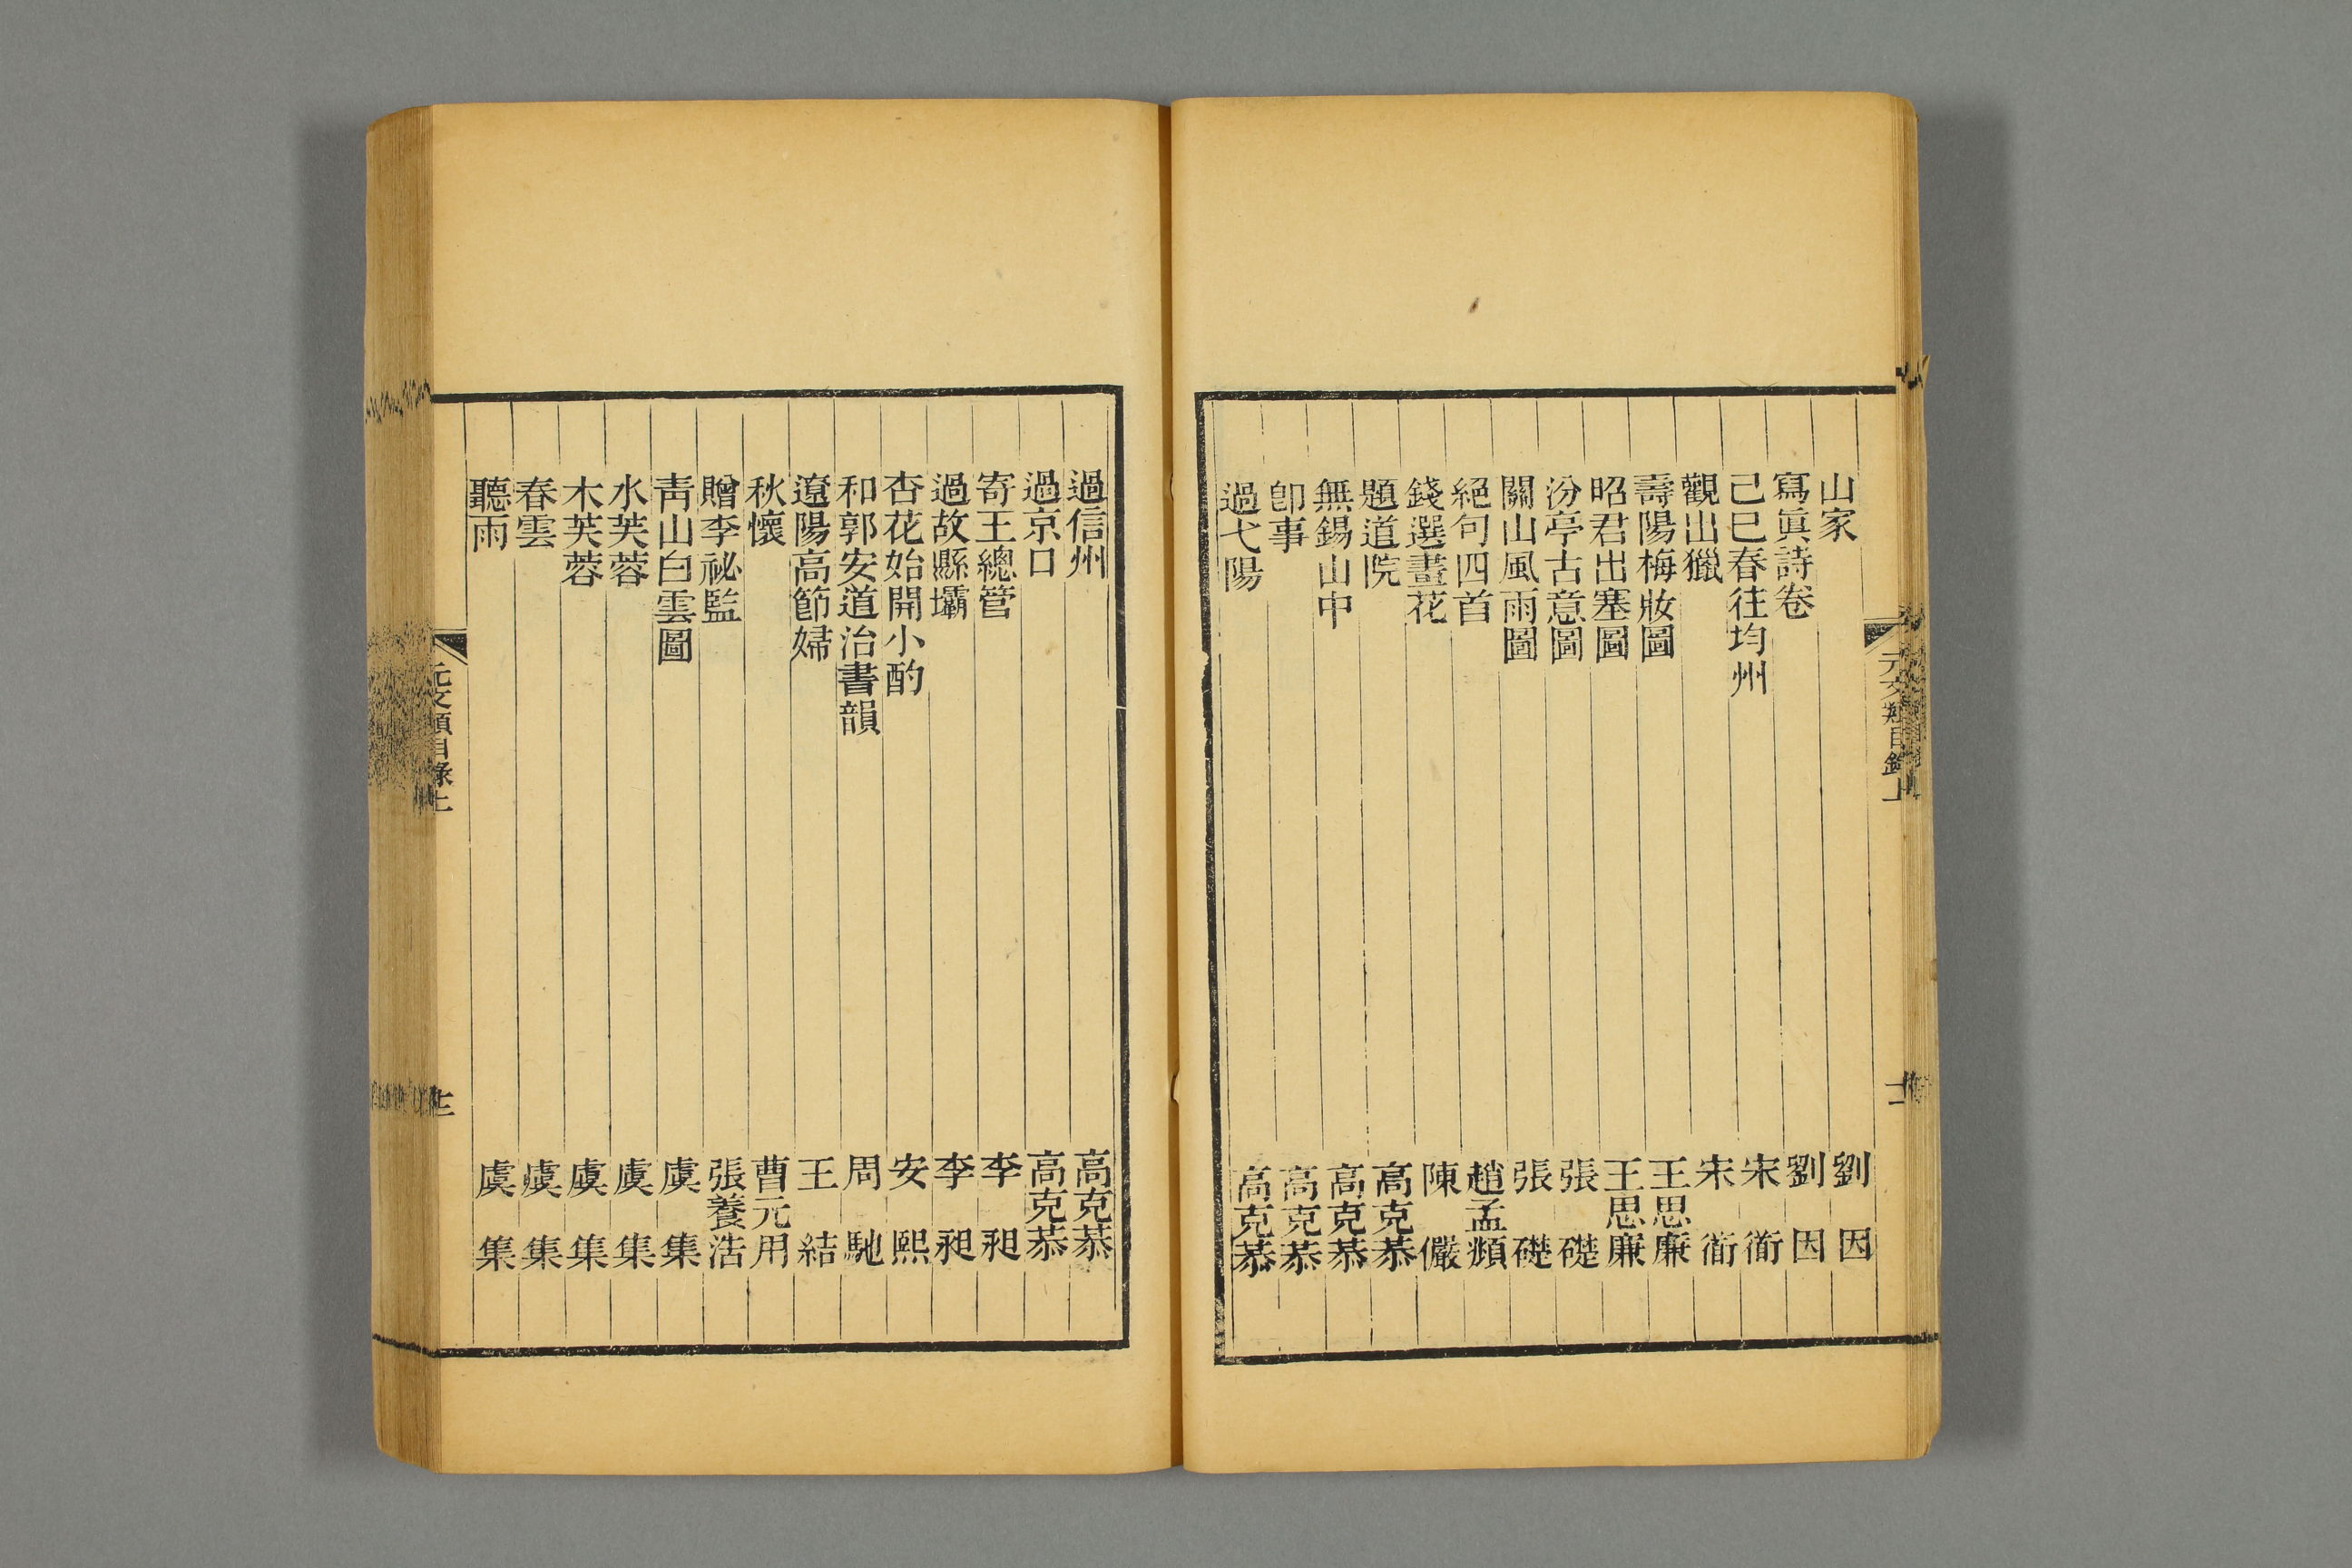 山家 劉因
寫眞詩卷 劉因
己巳春往均州 宋衜
觀出獵 宋衜
壽陽梅妝圖 王思廉
昭君出塞圖 王思廉
汾亭古意圖 張礎
關山風雨圖 張礎
絕句四首 趙孟頫
錢選畫花 陳儼
題道院 高克恭
無錫山中 高克恭
卽事 高克恭
過弋陽 高克恭
過信州 高克恭
過京口 高克恭
寄王總管 李昶
過故縣壩 李昶
杏花始開小酌 安熙
和郭安道治書韻 周馳
遼陽高節婦 王結
秋懷 曹元用
贈李祕監 張養浩
靑山白雲圖 虞集
水芙蓉 虞集
木芙蓉 虞集
春雲 虞集
聽雨 虞集
元文類目錄上